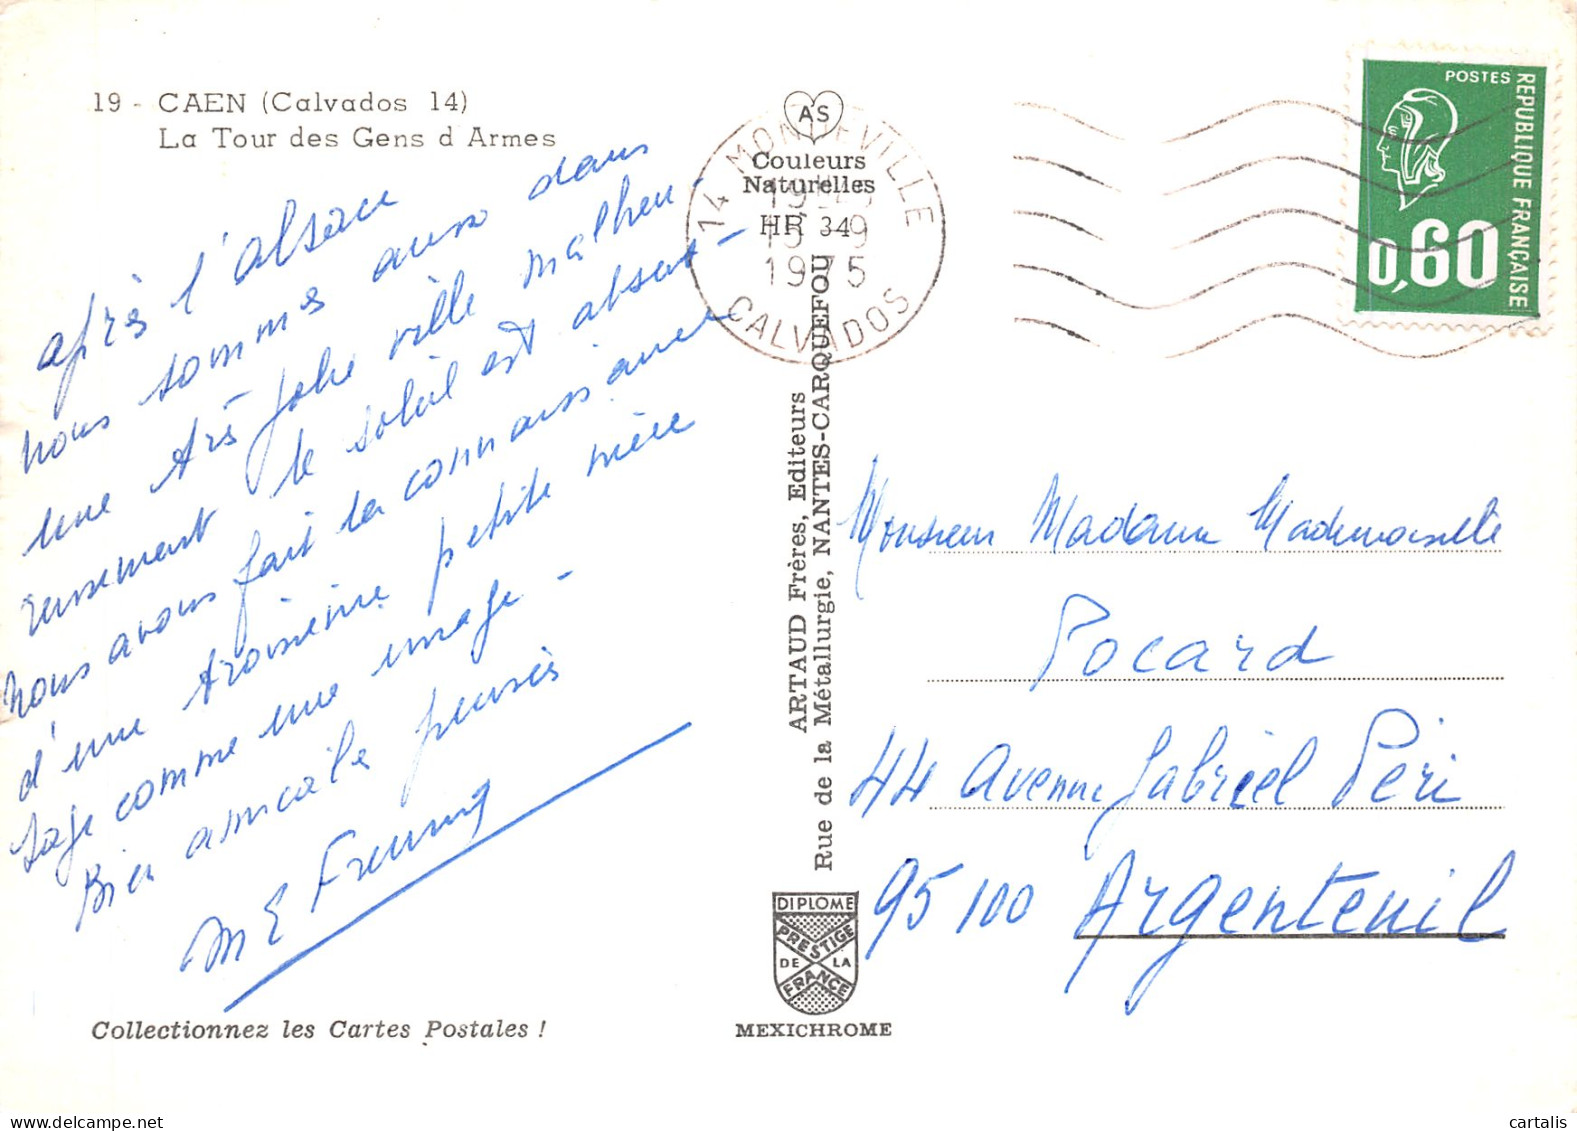 19 - CAEN (Calvados 14)
La Tour des Gens d Armes
après l'alsace
nous sommes aussi dans
une très jolie ville malheu-
reusement le soleil est absent -
nous avons fait la connaissance
d'une troisième petite mère
sage comme une image -
Bien amicales pensées
M E
Collectionnez les Cartes Postales !
AS
Couleurs
Naturelles
HR 34
14 MONDEVILLE
1975
CALVADOS
ARTAUD Frères, Editeurs
Rue de la Métallurgie, NANTES-CARQUEFOU
DIPLOME
PRESTIGE
DE LA
FRANCE
MEXICHROME
POSTES
REPUBLIQUE FRANÇAISE
0,60
Monsieur Madame Mademoiselle
Pocard
44 Avenue Gabriel Péri
95100 Argenteuil
cartalis